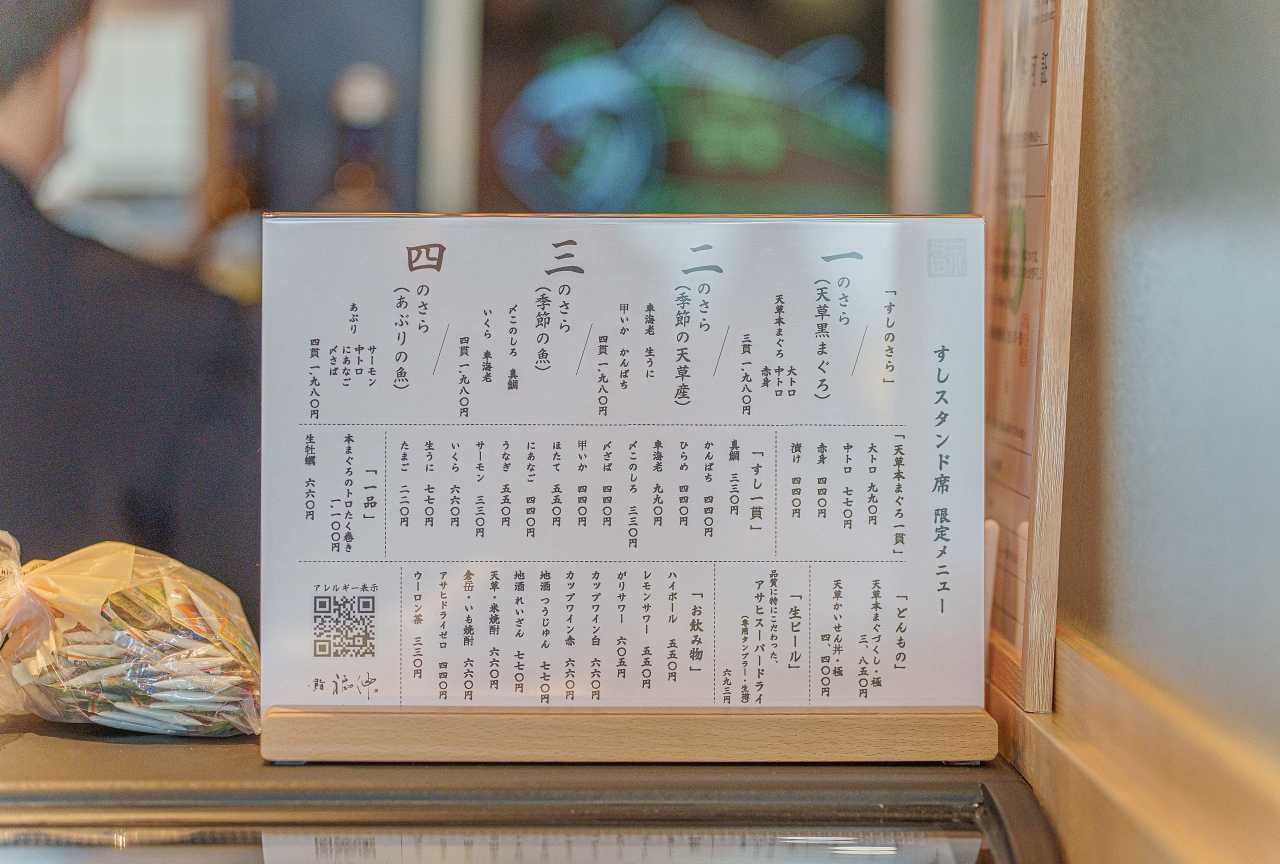 すしスタンド席 限定メニュー
「すしのさら」
一のさら
(天草黒まぐろ)
天草本まぐろ 大トロ
中トロ
赤身
三貫 一、九八〇円
二のさら
(季節の天草産)
車海老 生うに
甲いか かんぱち
四貫 一、九八〇円
三のさら
(季節の魚)
〆このしろ 真鯛
いくら 車海老
四貫 一、九八〇円
四のさら
(あぶりの魚)
あぶり サーモン
中トロ
にあなご
〆さば
四貫 一、九八〇円
「天草本まぐろ一貫」
大トロ 九九〇円
中トロ 七七〇円
赤身 四四〇円
漬け 四四〇円
「すし一貫」
真鯛 三三〇円
かんぱち 四四〇円
ひらめ 四四〇円
車海老 九九〇円
〆このしろ 三三〇円
〆さば 四四〇円
甲いか 四四〇円
ほたて 五五〇円
にあなご 四四〇円
うなぎ 五五〇円
サーモン 三三〇円
いくら 六六〇円
生うに 七七〇円
たまご 二二〇円
「一品」
本まぐろのトロたく巻き
一、一〇〇円
生牡蠣 六六〇円
「どんもの」
天草本まぐづくし・極
三、八五〇円
天草かいせん丼・極
四、四〇〇円
「生ビール」
品質に特にこだわった、
アサヒスーパードライ
(専用タンブラー・生樽)
六九三円
「お飲み物」
ハイボール 五五〇円
レモンサワー 五五〇円
がりサワー 六〇五円
カップワイン白 六六〇円
カップワイン赤 六六〇円
地酒 つうじゅん 七七〇円
地酒 れいざん 七七〇円
天草・米焼酎 六六〇円
倉岳・いも焼酎 六六〇円
アサヒドライゼロ 四四〇円
ウーロン茶 三三〇円
アレルギー表示
鮨 福伸